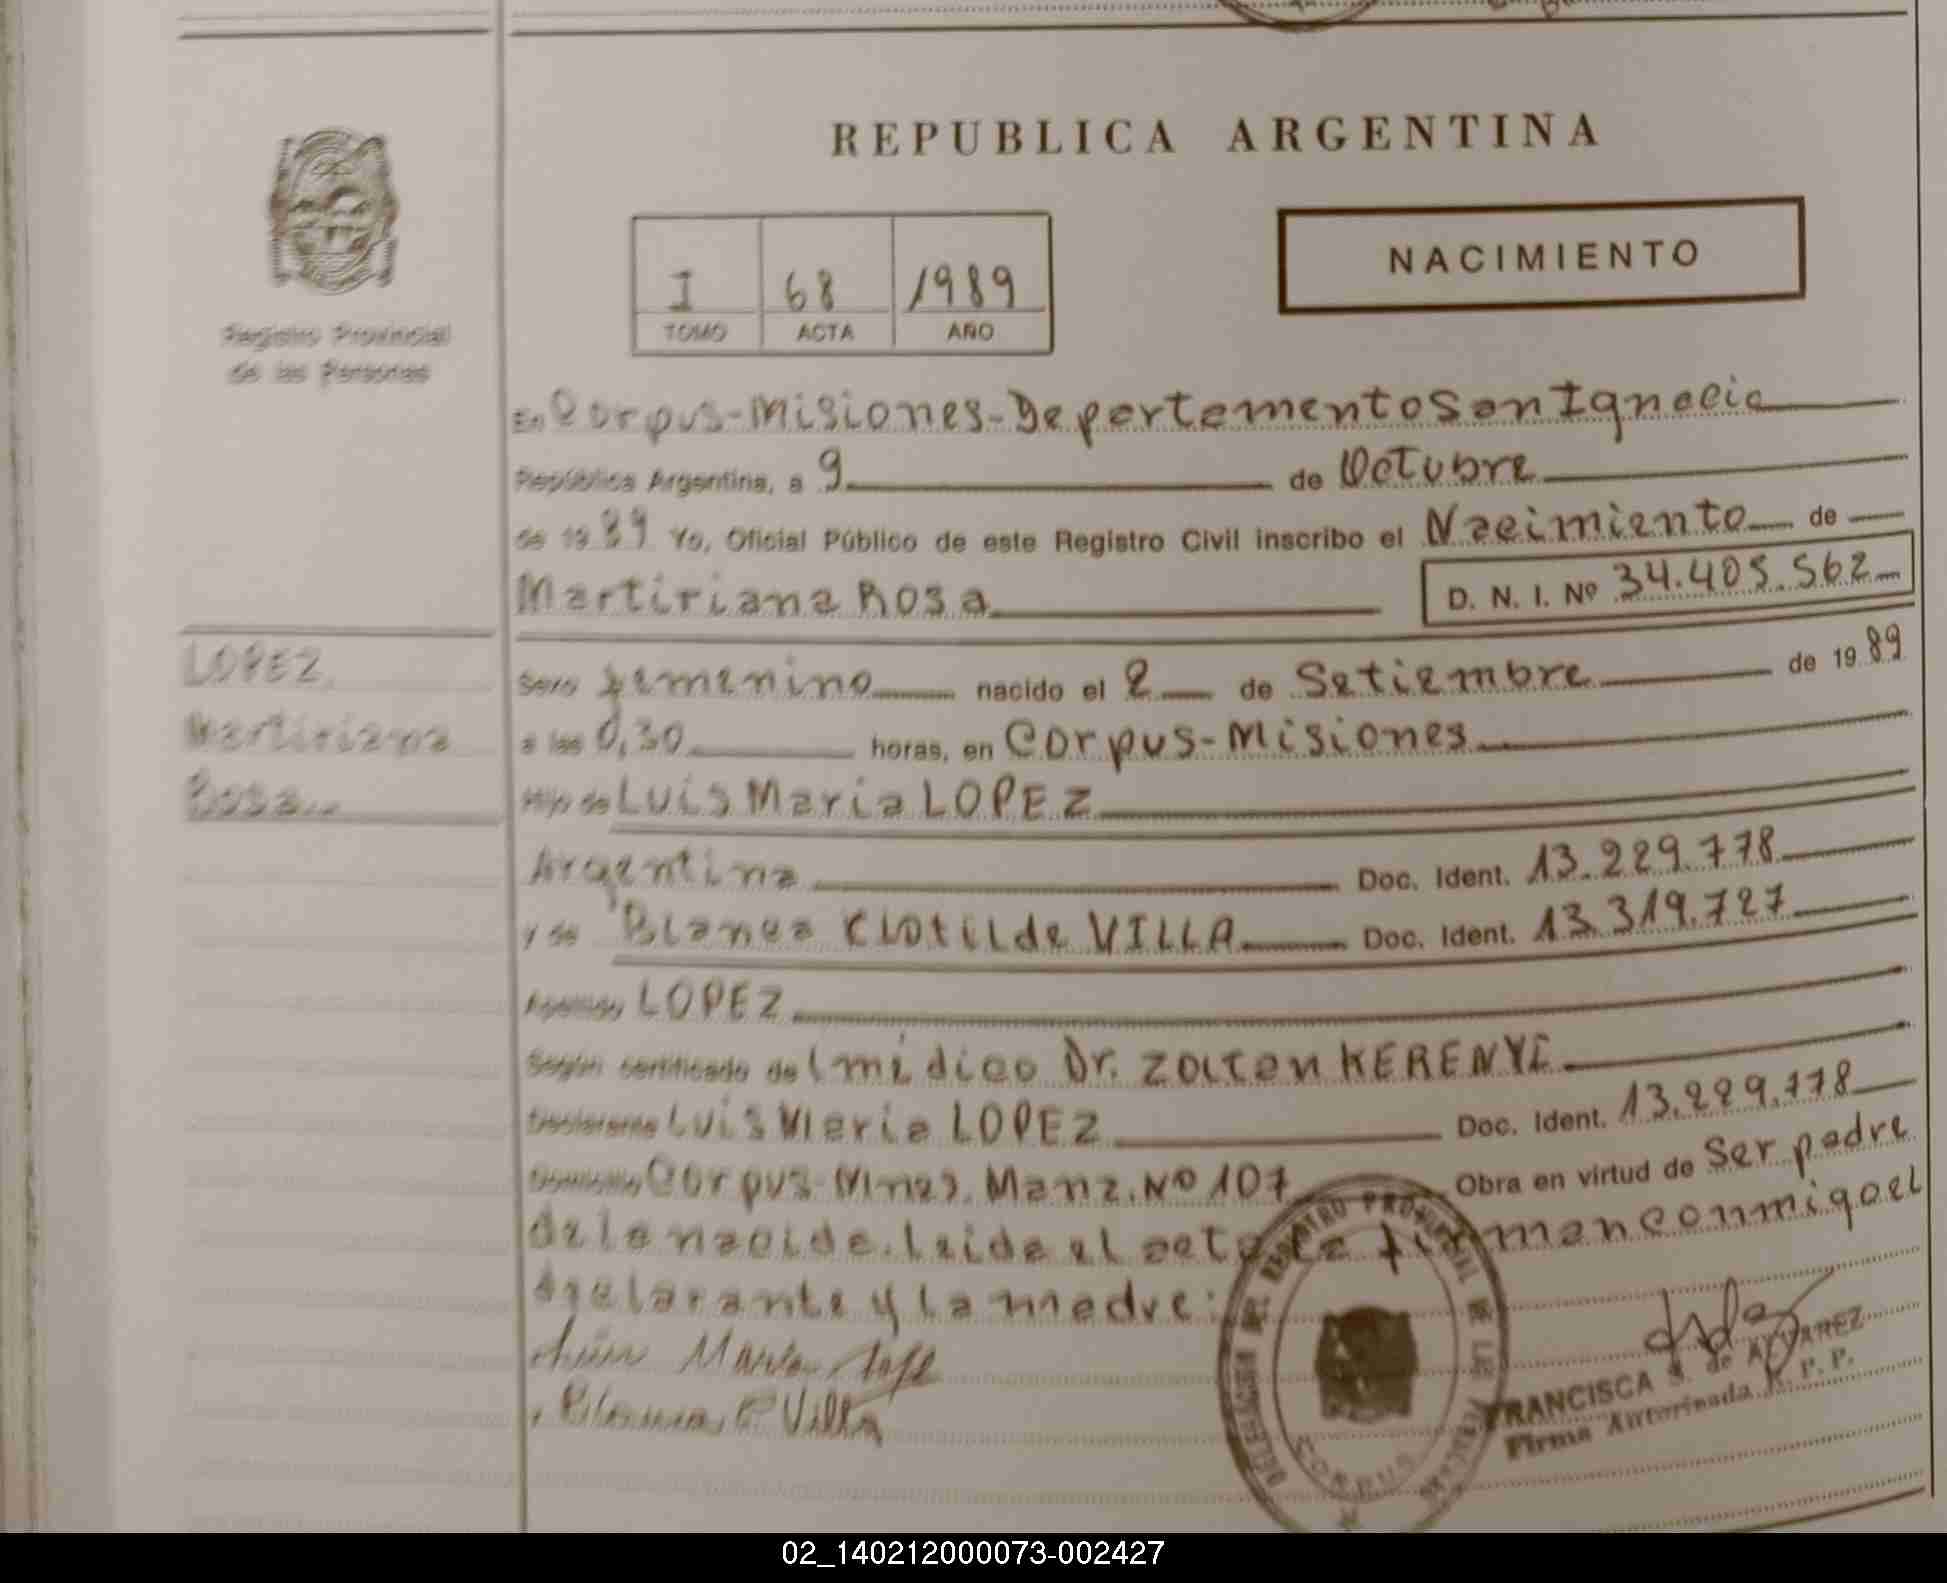 REPUBLICA ARGENTINA
NACIMIENTO
I 68 1989
TOMO ACTA AÑO
Registro Provincial
de las Personas
En Corpus-Misiones-Departamento San Ignacio
República Argentina, a 9 de Octubre
de 19 89 Yo, Oficial Público de este Registro Civil inscribo el Nacimiento de
Martiriana Rosa D. N. I. Nº 34.405.562
LOPEZ
Martiriana
Rosa
Sexo femenino nacido el 2 de Setiembre de 19 89
a las 0,30 horas, en Corpus-Misiones
Hijo de Luis Maria LOPEZ
Argentina Doc. Ident. 13.229.778
y de Blanca Clotilde VILLA Doc. Ident. 13.319.727
Apellido LOPEZ
Según certificado del médico Dr. Zoltan KERENYI
Declarante Luis Maria LOPEZ Doc. Ident. 13.229.778
Domicilio Corpus-Mnes. Manz. Nº 107 Obra en virtud de Ser padre
de la nacida. Leida el acta la firman conmigo el
declarante y la madre:
Luis Maria Lopez
Blanca C Villa
DELEGACION DEL REGISTRO PROVINCIAL DE LAS PERSONAS
CORPUS
FRANCISCA S. de ALVAREZ
Firma Autorizada R. P. P.
02_140212000073-002427